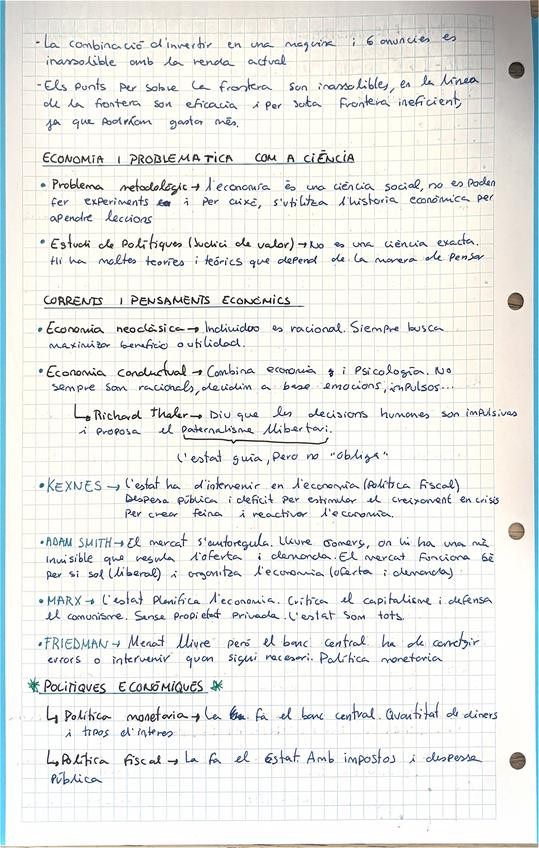 - La combinació d'invertir en una maquina i 6 anuncies es
inassolible amb la renda actual
- Els punts per sobre la frontera son inassolibles, en la línea
de la fontera son eficacia i per sota frontera ineficient,
ja que podríom gastar més.
ECONOMIA I PROBLEMATICA COM A CIÈNCIA
• Problema metodològic → l'economia és una ciència social, no es poden
fer experiments i per això, s'utilitza l'historia econòmica per
apendre lleccions
• Estudi de Polítiques (Judici de valor) → No es una ciència exacta.
Hi ha moltes teories i teòrics que depend de la manera de pensar
CORRENTS I PENSAMENTS ECONÒMICS
• Economia neoclàsica → Individuo es racional. Siempre busca
maximizar beneficio o utilidad.
• Economia conductual → Combina economia i Psicologia. No
sempre som racionals, decidim a base emocions, impulsos...
↳ Richard Thaler → Diu que les decisions humanes son impulsives
i proposa el paternalisme llibertari.
L'estat guia, pero no "obliga"
• KEYNES → L'estat ha d'intervenir en l'economia (Política fiscal)
Despesa pública i deficit per estimular el creixement en crisis
per crear feina i reactivar l'economia.
• ADAM SMITH → El mercat s'autoregula. Lliure comerç, on hi ha una mà
invisible que regula l'oferta i demanda. El mercat funciona bé
per si sol (liberal) i organitza l'economia (oferta i demanda)
• MARX → L'estat planifica l'economia. Critica el capitalisme i defensa
el comunisme. Sense propietat privada. L'estat som tots.
• FRIEDMAN → Mercat lliure però el banc central ha de corretgir
errors o intervenir quan sigui necesari. Política monetaria
* POLÍTIQUES ECONÒMIQUES *
↳ Política monetaria → La fa el banc central. Quantitat de diners
i tipos d'interes
↳ Política fiscal → La fa el Estat. Amb impostos i despessa
pública